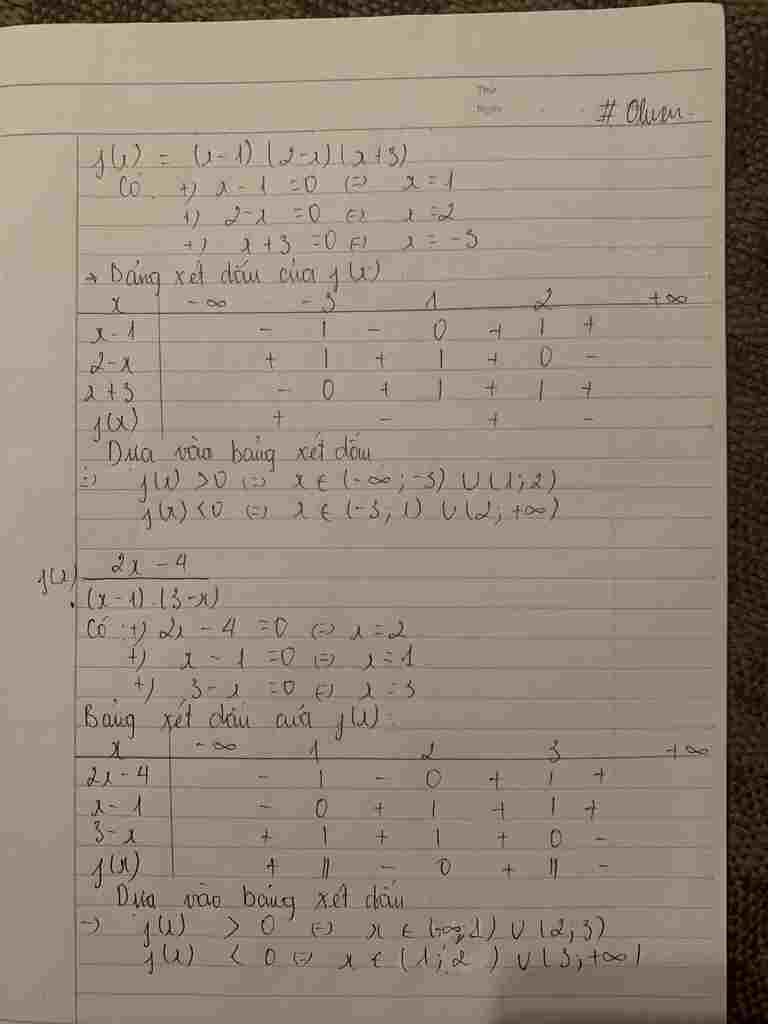 Thứ
Ngày
# Olwen -
f(x) = (x-1)(2-x)(x+3)
Có +) x - 1 = 0 ⇔ x = 1
+) 2-x = 0 ⇔ x = 2
+) x + 3 = 0 ⇔ x = -3
→ Bảng xét dấu của f(x)
x -∞ -3 1 2 +∞
x-1 - | - 0 + | +
2-x + | + | + 0 -
x+3 - 0 + | + | +
f(x) + - + -
Dựa vào bảng xét dấu
⇒ f(x) >0 ⇔ x ∈ (-∞; -3) ∪ (1; 2)
f(x) <0 ⇔ x ∈ (-3, 1) ∪ (2; +∞)
f(x) 2x - 4
(x-1).(3-x)
Có : +) 2x - 4 = 0 ⇔ x = 2
+) x - 1 = 0 ⇔ x = 1
+) 3-x = 0 ⇔ x = 3
Bảng xét dấu của f(x):
x -∞ 1 2 3 +∞
2x-4 - | - 0 + | +
x-1 - 0 + | + | +
3-x + | + | + 0 -
f(x) + || - 0 + || -
Dựa vào bảng xét dấu
→ f(x) > 0 ⇔ x ∈ (-∞; 1) ∪ (2; 3)
f(x) < 0 ⇔ x ∈ (1; 2) ∪ (3; +∞)